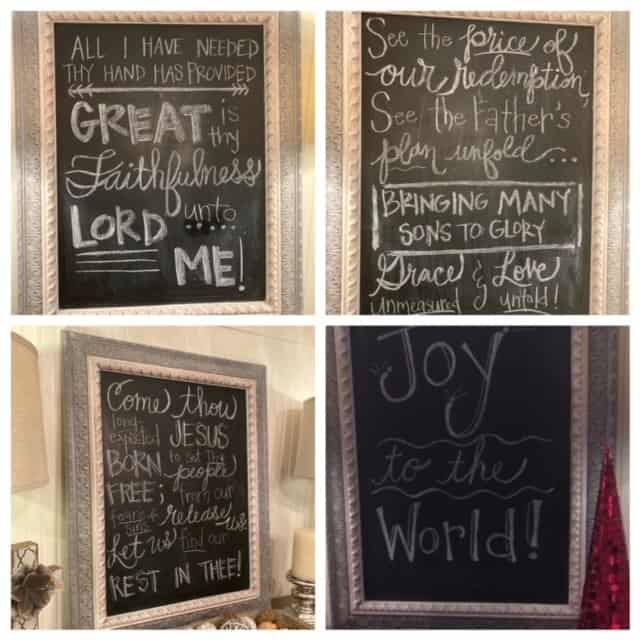 ALL I HAVE NEEDED
THY HAND HAS PROVIDED
GREAT is
thy
Faithfulness
LORD unto
ME!
See the price of
our redemption,
See the Father's
plan unfold...
BRINGING MANY
SONS TO GLORY
Grace & Love
Unmeasured Untold!
Come thou
long-
expected JESUS
BORN to set thy
people
FREE; from our
fears +
sins release us.
Let us find our
REST IN THEE!
Joy
to the
World!